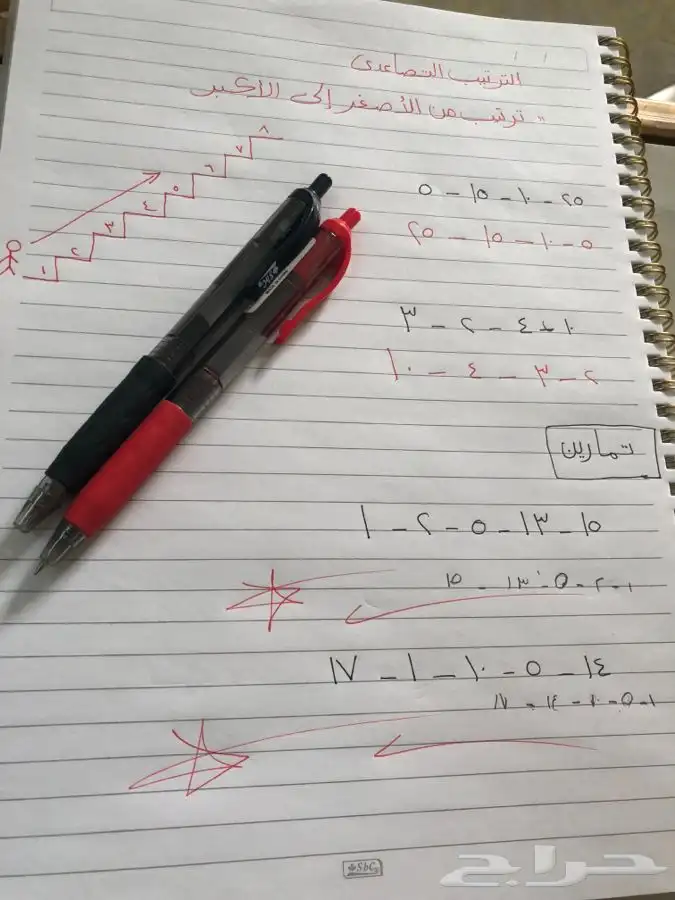 الترتيب التصاعدي
" ترتب من الأصغر إلى الأكبر
١ ٢ ٣ ٤ ٥ ٦ ٧ ٨
٢٥ - ١٠ - ١٥ - ٥
٥ - ١٠ - ١٥ - ٢٥
١٠ - ٤ - ٢ - ٣
٢ - ٣ - ٤ - ١٠
تمارين
١٥ - ١٣ - ٥ - ٢ - ١
١ - ٢ - ٥ - ١٣ - ١٥
١٤ - ٥ - ١٠ - ١ - ١٧
١ - ٥ - ١٠ - ١٤ - ١٧
SbC
حراج